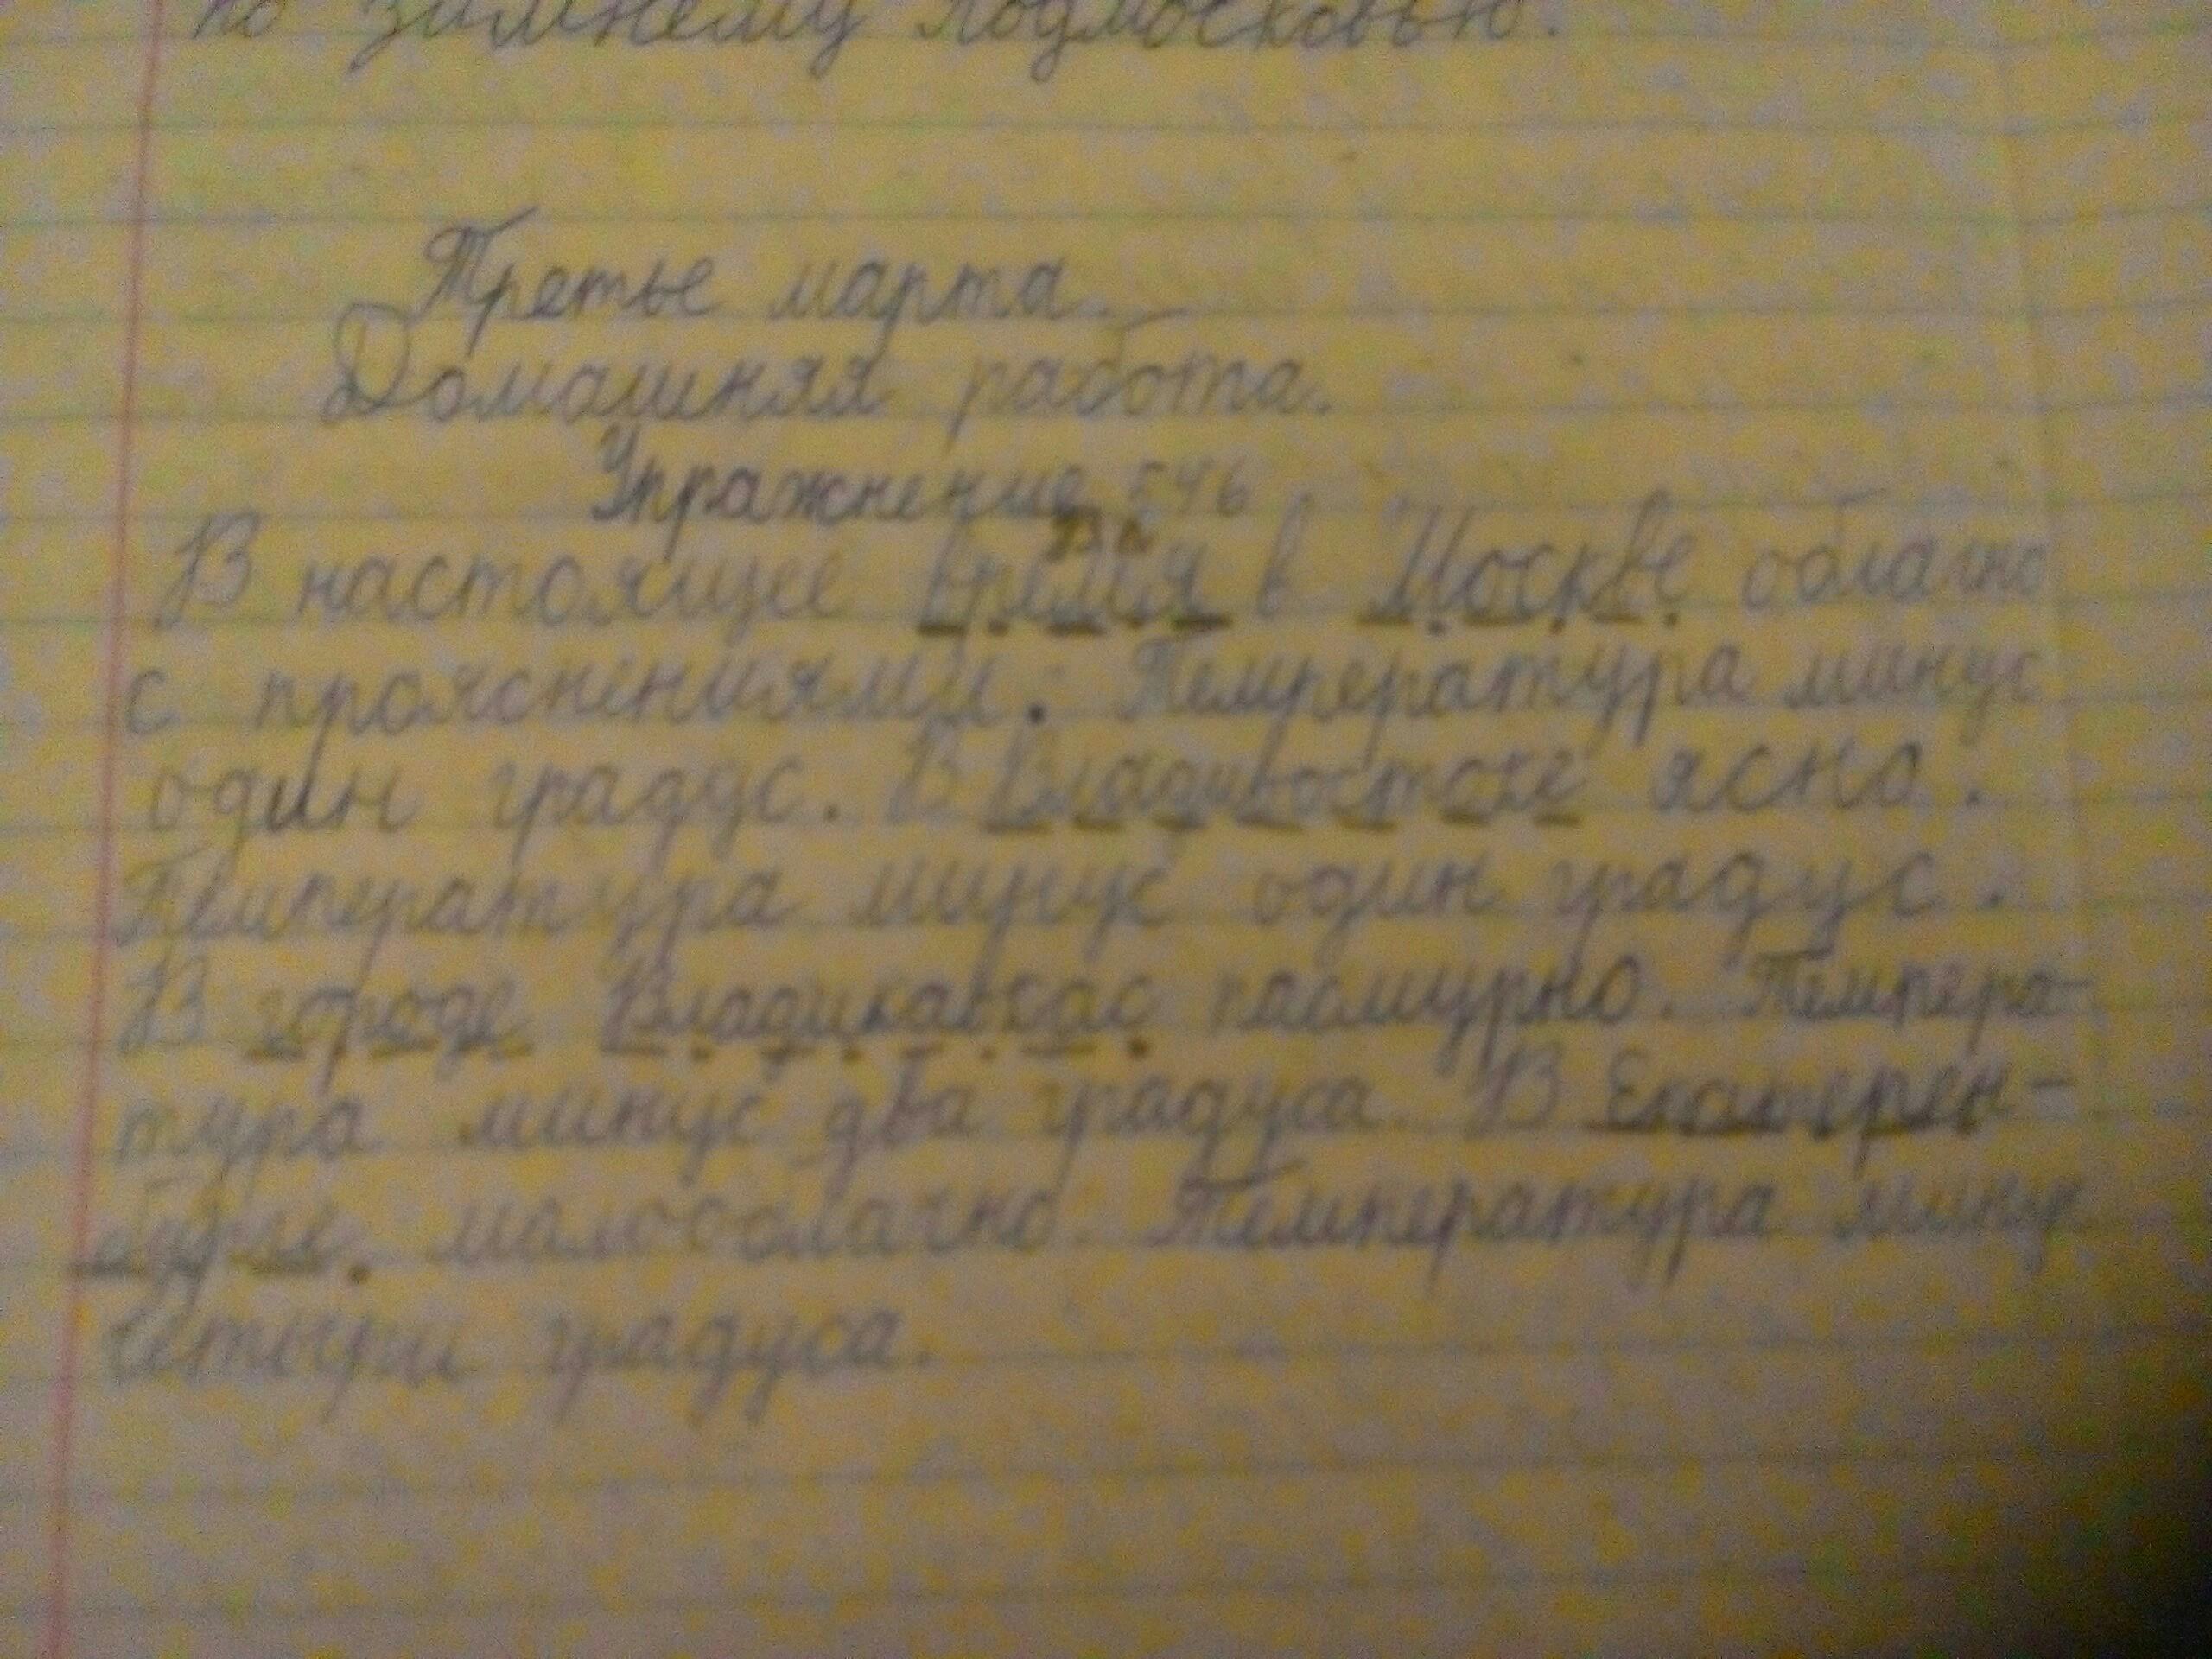 по зимнему Подмосковью.
Третье марта.
Домашняя работа.
Упражнение 546
В настоящее время в Москве облачно
с прояснениями. Температура минус
один градус. В Владивостоке ясно.
Температура минус один градус.
В городе Владикавказ пасмурно. Темпера-
тура минус два градуса. В Екатерен-
бурге малооблачно. Температура мину
четыри градуса.